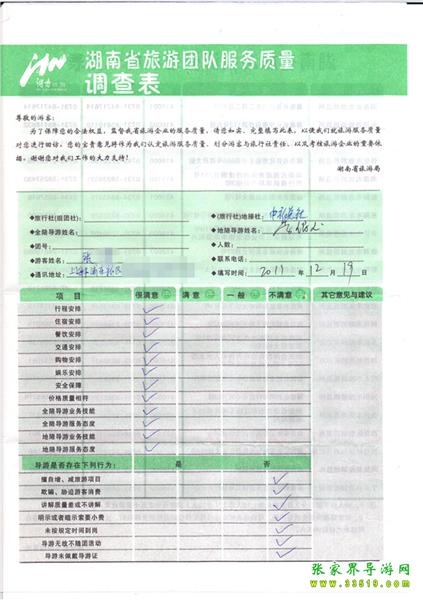 湖南省旅游团队服务质量
调查表
尊敬的游客:
为了保障您的合法权益，监督我省旅游企业的服务质量，请您如实、完整填写此表，以便我们就旅游服务质量
对您进行回访。您的宝贵意见将作为我们认定旅游服务质量、划分游客与旅行社责任、以及考核旅游企业的重要依
据。谢谢您对我们工作的大力支持!
湖南省旅游局
◆旅行社(组团社):
◆旅行社(地接社):
◆全陪导游姓名:
◆地陪导游姓名:
◆团号:
◆人数:
◆游客姓名: 张
◆联系电话:
◆通讯地址: 上海市浦东新区
◆填写时间: 2011 年 12 月 19 日
项 目 很满意 满 意 一 般 不满意 其它意见与建议
行程安排 ✓
住宿安排 ✓
餐饮安排 ✓
交通安排 ✓
购物安排 ✓
娱乐安排 ✓
安全保障 ✓
价格质量相符 ✓
全陪导游业务技能 ✓
全陪导游服务态度 ✓
地陪导游业务技能 ✓
地陪导游服务态度 ✓
导游是否存在下列行为: 是 否
擅自增、减旅游项目 ✓
欺骗、胁迫游客消费 ✓
讲解质量差或不讲解 ✓
明示或者暗示索要小费 ✓
未按规定时间到岗 ✓
导游无故不随团活动 ✓
导游未佩戴导游证 ✓
张家界导游网
www.33519.com